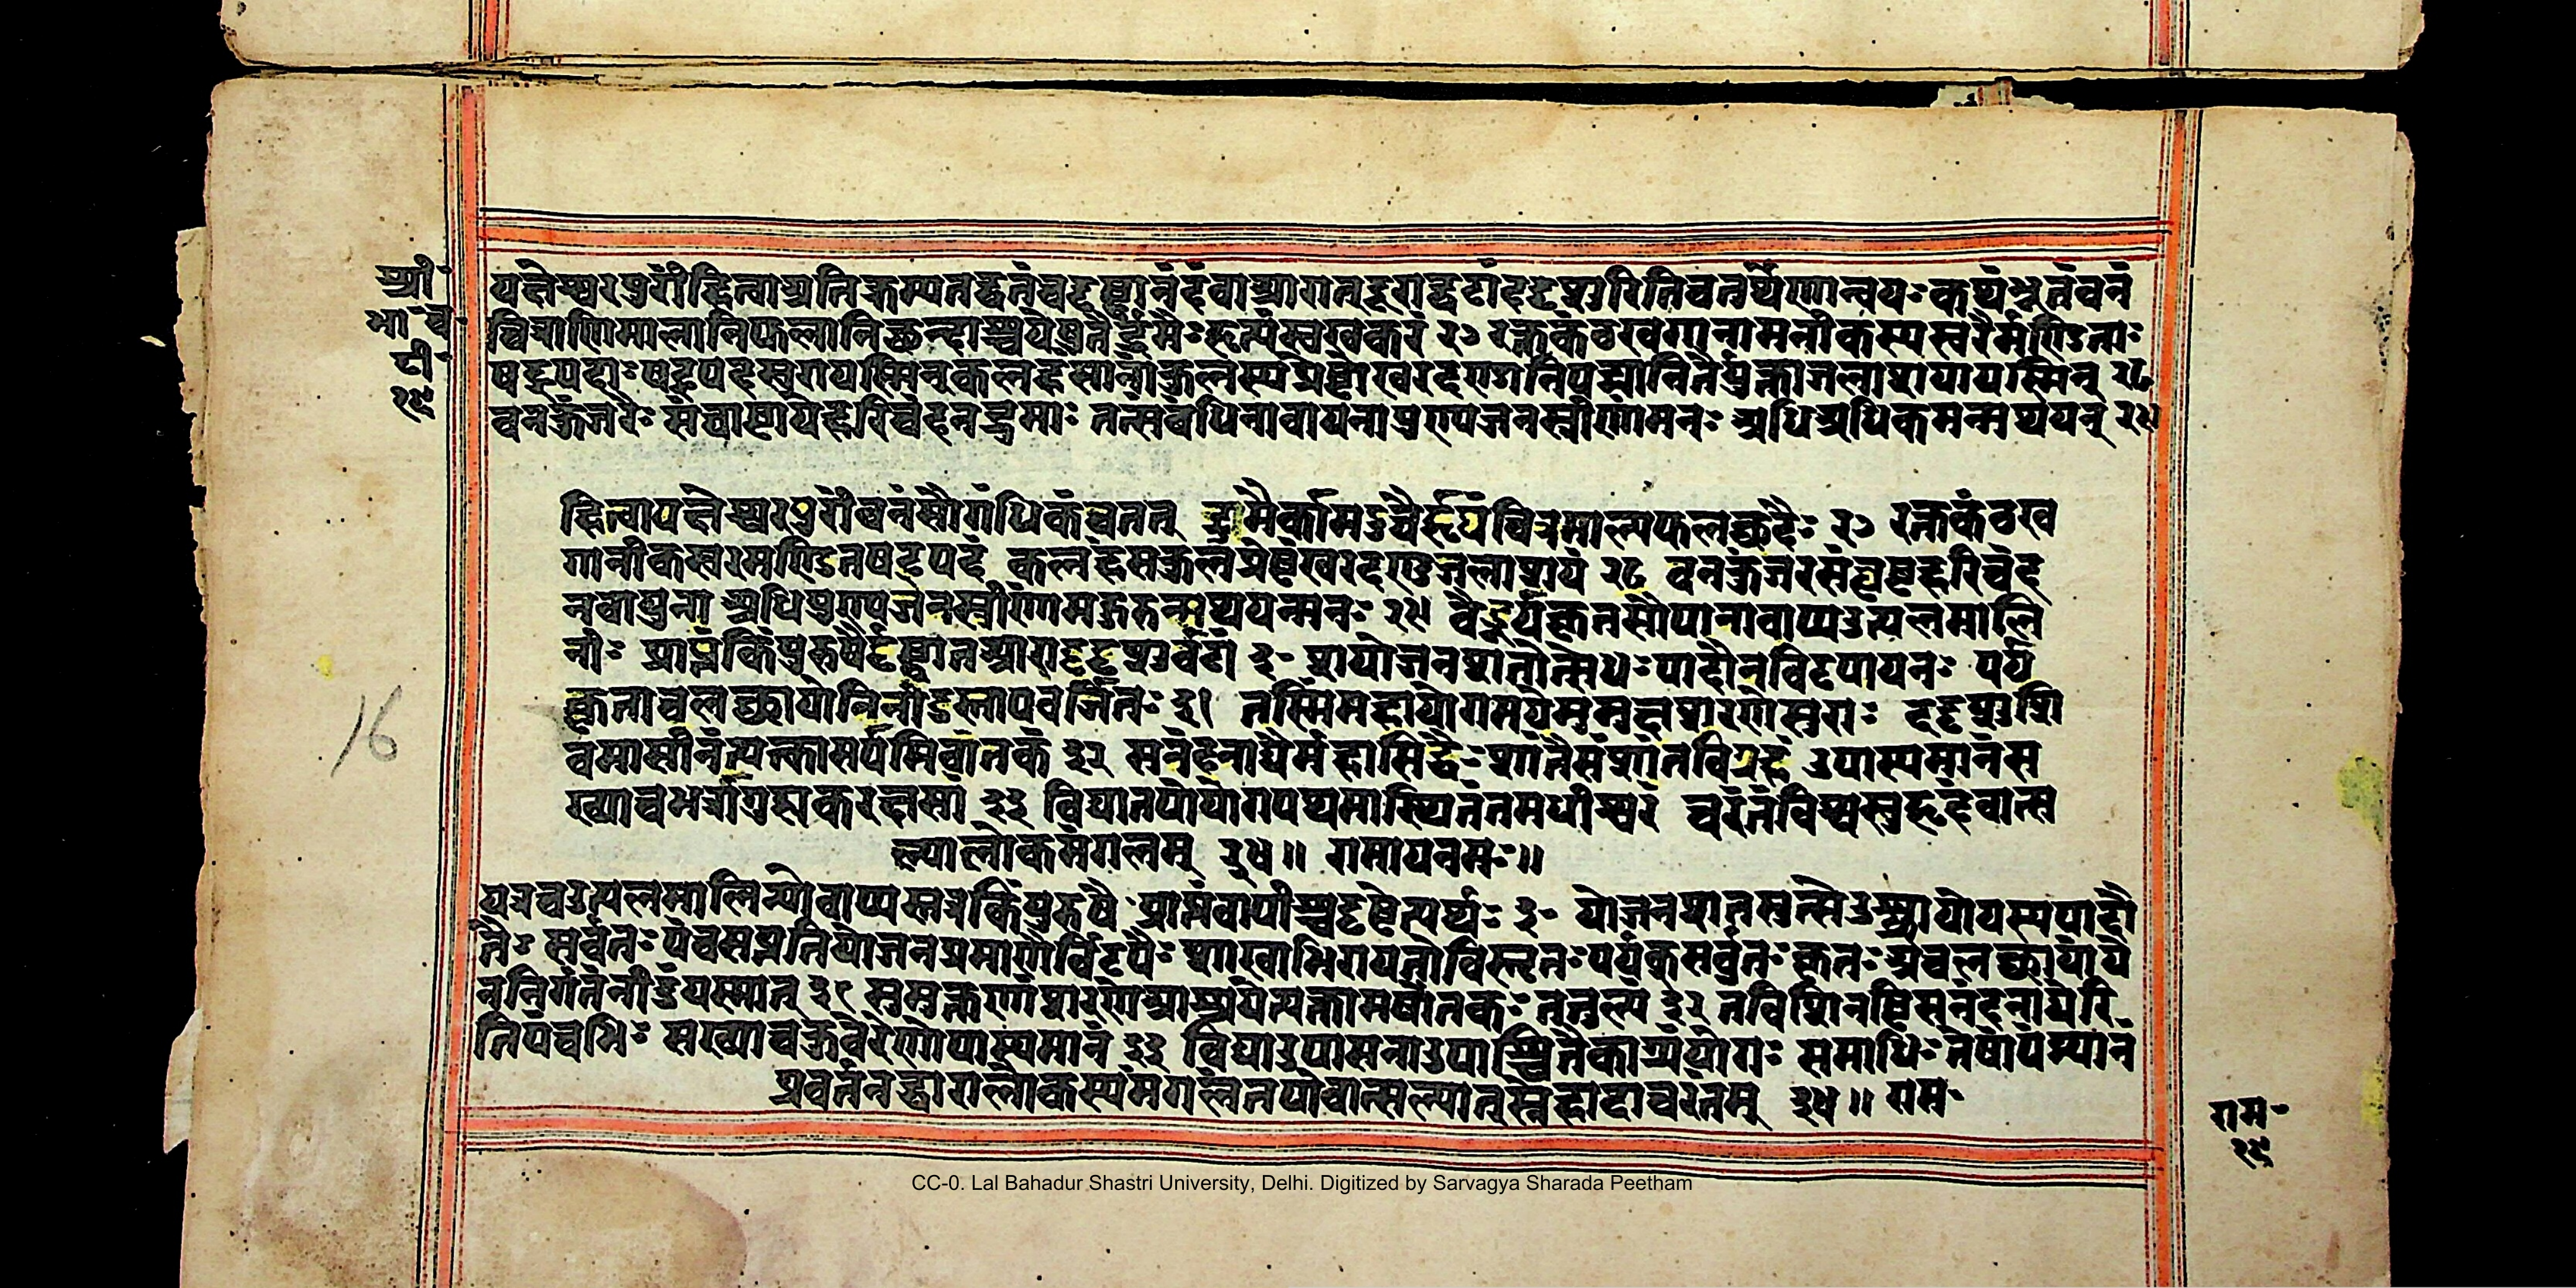 श्री॰
भा॰ च॰
टी॰
१६
यक्षेश्वरपुरीं हित्वा अतिक्रम्य तद्वनं च दृष्ट्वा नं देवा आरात् दूराद्वटं ददृशुरिति चतुर्थेणान्वयः कथंभूतं वनं
चित्राणि माला नि फलानि छन्दाश्च येषु तैर्द्रुमैः हृत्यं स्वखकरं २७ रक्तकंठखगानामनीकस्य स्वरैर्मण्डिताः
षट्पदाः षट्पदस्वरा यस्मिन्
वनकुंजरैः संघृष्टा ये हरिचंदनद्रुमाः तत्संबंधिना वायुना पुण्यजनस्त्रीणां मनः अधि अधिकमुन्मथयत् २९
हित्वा यक्षेश्वरपुरीं वनं सौगंधिकं च तत् द्रुमैः कामदुघैर्हृद्यं चित्रमाल्यफलच्छदैः २७ रक्तकंठख
गानीकस्वरमण्डितषट्पदं कलहंसकुलप्रेष्ठं खरदण्डजलाशयं २८ वनकुंजरसंघृष्टहरिचंद
नवायुना अधिपुण्यजनस्त्रीणां मुहुरुन्मथयन्मनः २९ वैडूर्यकृतसोपाना वाप्य उत्पलमालि
नीः प्राप्तं किंपुरुषैर्दृष्ट्वा त आराद्ददृशुर्वटं ३॰ श योजनशतोत्सेधः पादोनविटपायनः पर्य
क्कृताचलच्छायो निर्नीडस्तापवर्जितः ३१ तस्मिन्महायोगमये मुमुक्षुशरणे सुराः ददृशुः शि
वमासीनं त्यक्तामर्षमिवांतकं ३२ सनंदनाद्यैर्महासिद्धैः शांतैः संशांतविग्रहं उपास्यमानं स
ख्या च भर्त्रा गुह्यकरक्षसां ३३ विद्यातपोयोगपथमास्थितं तमधीश्वरं चरंतं विश्वसुहृदं वात्स
ल्याल्लोकमंगलम् ३४॥ रामाय नमः॥
यत्र च उत्पलमालिन्यो वाप्यस्तत्र किंपुरुषैः प्राप्तं वापीश्च दृष्ट्वेत्यर्थः ३॰ योजनशतमुत्सेध उच्छ्रायो यस्य पादो
नैः सर्वतः पंचसप्ततियोजनप्रमाणैर्विटपैः शाखाभिरायतो विस्तृतः पर्यक् सर्वतः कृतः अचलच्छाया ये
न निर्गतं नीडं यस्मात् ३१ मुमुक्षूणां शरणे आश्रये त्यक्तामर्षांतकः तत्तुल्यं ३२
तिपंचभिः सख्या च कुबेरेणोपास्यमानं ३३ विद्या उपासना उपाश्चितैकाग्र्यं योगः समाधिः तेषां पंथानं
प्रवर्तनद्वारा लोकस्य मंगलं तपो वात्सल्यात् स्नेहादाचरंतम् ३४॥ राम॰
राम॰
१६
16
CC-0. Lal Bahadur Shastri University, Delhi. Digitized by Sarvagya Sharada Peetham